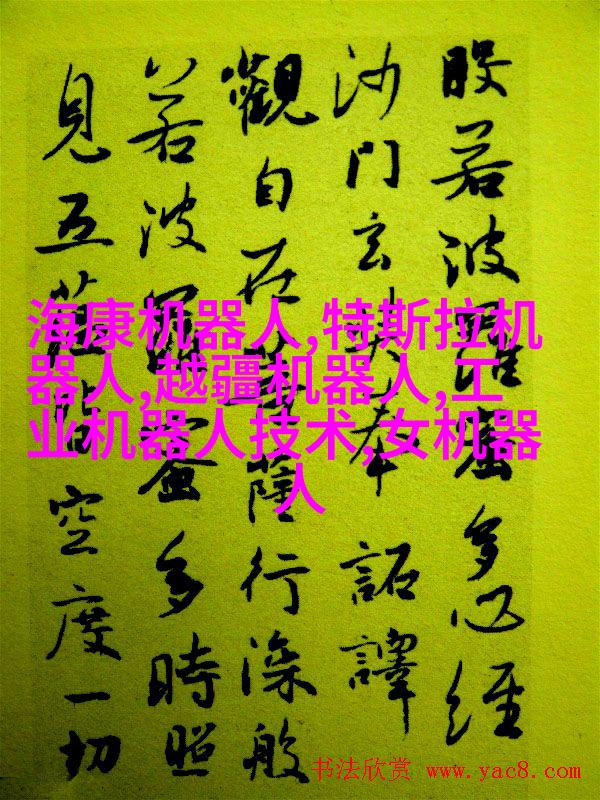 般若波羅蜜多心經
沙門玄奘奉 詔譯
觀自在菩薩行深般
若波羅蜜多時照
見五蘊皆空度一切
海康机器人,特斯拉机
器人,越疆机器人,工
业机器人技术,女机器
人
书法欣赏 www.yac8.com